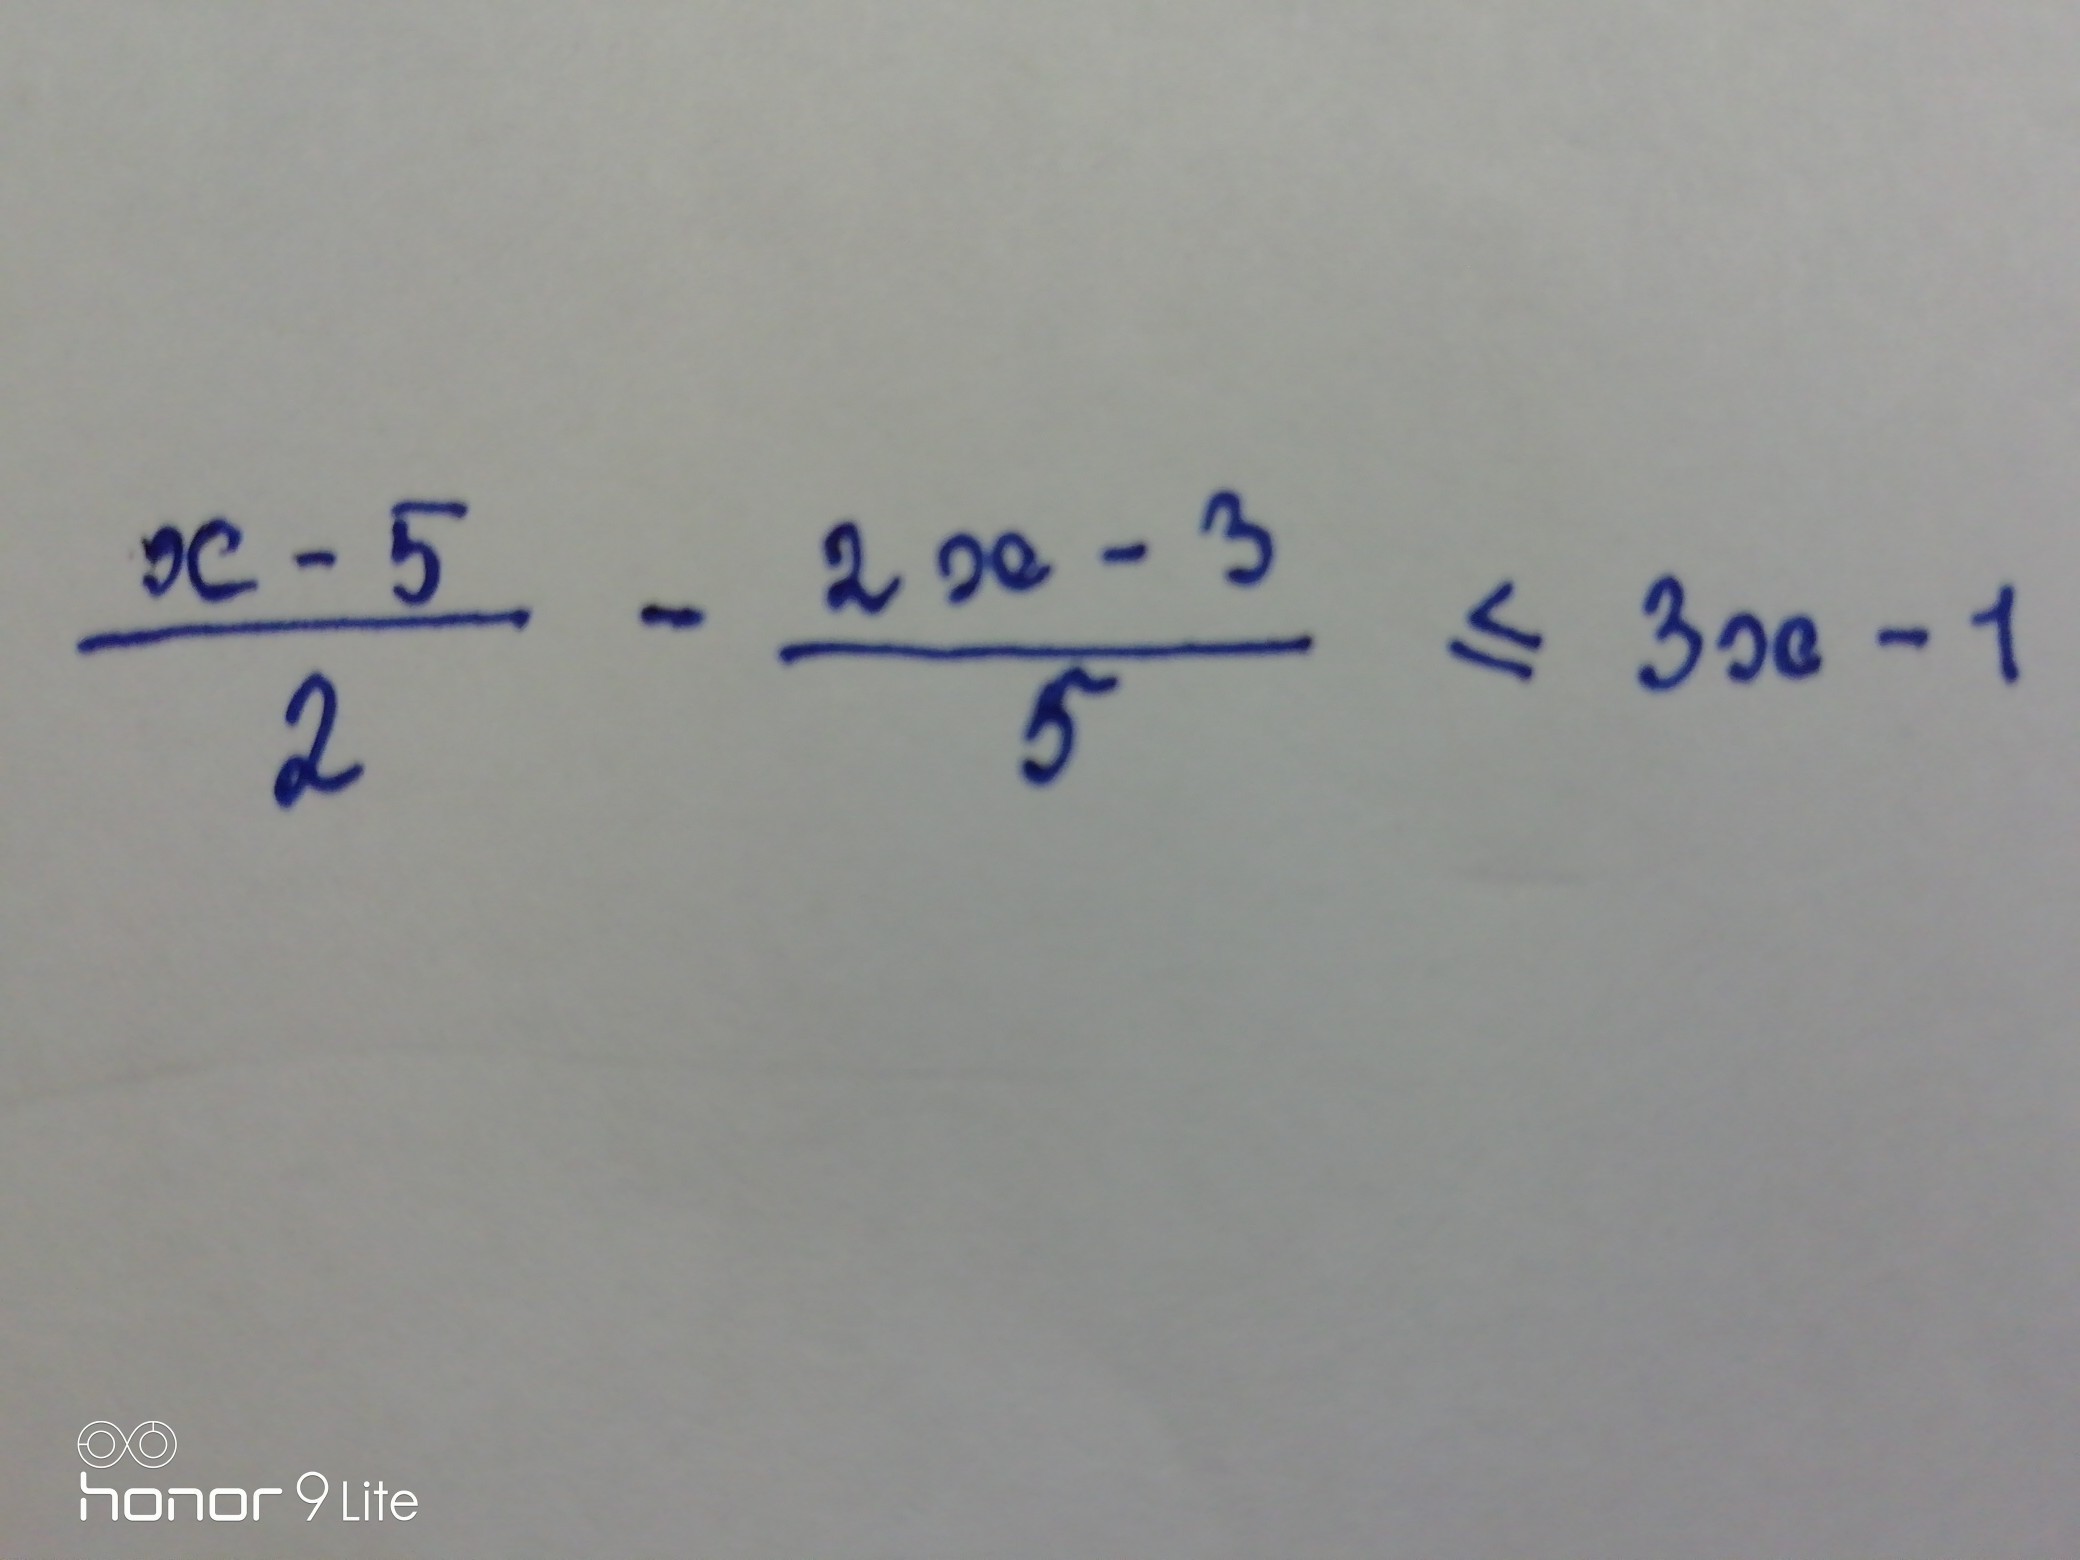 x - 5 / 2 - 2x - 3 / 5 ≤ 3x - 1
honor 9 Lite